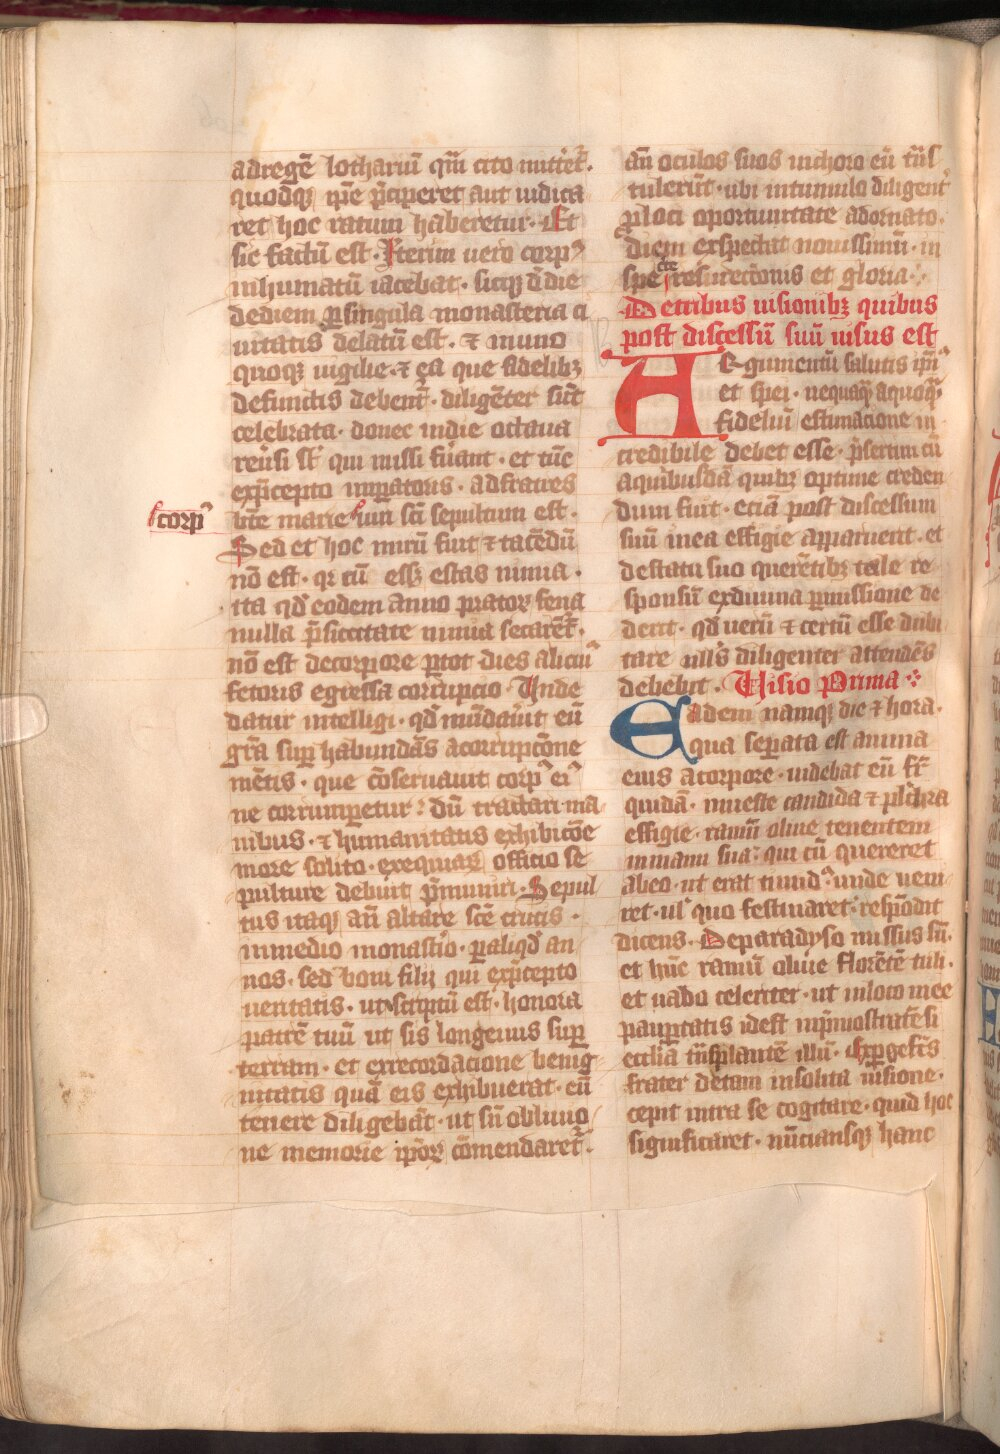 adregē lothariū qm̄ cito mittēt᷑.
quodcūq; ip̄e p̄ciperet aut iudica
ret hoc ratum haberetur. Et
sic factū est. Iterim uero corpꝰ
inhumatū iacebat. sicq; de die
dediem ꝑsingula monasteria ci
uitatis delatū est. ⁊ in uno
quoq; uigilie. ⁊ ea que fidelibꝫ
defunctis debent᷑. diligēter sūt
celebrata. donec indie octaua
reūsi sūt qui missi fūant. et tūc
exp̄cepto imꝑatoris. adfratres
bte marie uiri sc̄i sepultum est.
corpꝰ
Sed et hoc mirū fuit ⁊ tacēdū
nō est. qꝛ cū essꝫ estas nimia.
ita qd̓ eodem anno pratoꝝ fena
nulla p̄ siccitate nimia secarēt᷑.
nō est decorpore ꝑtot dies alicuiꝰ
fetoris egressa corrupcio. Unde
datur intelligi. qd̓ mūdauit eū
gr̄a suꝑ habundās acorrupcōne
mētis. que cōseruauit corpꝰ eiꝰ
ne corrumꝑetur. dū tractari ma
nibus. ⁊ humanitatis exhibicōe
more solito. exequiaꝝ officio se
pulture debuit p̄muniri. Sepul
tus itaq; an̄ altare scē crucis.
inmedio monastīo. ꝑaliqd̓ an
nos. sed boni filij qui exp̄cepto
ueritatis. ut sc̄ptū est. honora
patrē tuū ut sis longeuus suꝑ
terram. et exrecordacione benig
nitatis quā eis exhibuerat. eū
tenere diligebāt. ut sn̄ obliuio
ne memorie ip̄oꝝ cōmendaret᷑.
an̄ oculos suos inchoro eū t̄ns
tulerūt. ubi intumulo diligent᷑
ꝓloci oportunitate adornato.
diem exspectat nouissimū. in
spe resurrectōnis et gloria.
Detribus uisionibꝫ quibus
post discessū suū uisus est
Argumentū salutis ip̄iꝰ
et spei. nequaq̄ aquoq̄
fideliū estimacione in
credibile debet esse. p̄sertim cū
aquibusdā quibꝫ optime creden
dum fuit. eciā post discessum
suū inea effigie apparuerit. et
destatu suo querētibꝫ tale re
sponsū exdiuina ꝑmissione de
derit. qd̓ uerū ⁊ certū esse dubi
tare nllꝰ diligenter attendēs
debebit. Uisio Prima
Eadem namq; die ⁊ hora.
qua seꝑata est anima
eius acorpore. uidebat eū fr̄
quidā. inueste candida ⁊ pulchra
effigie. ramū oliue tenentem
inmanu sua. qui cū quereret
abeo. ut erat timidꝰ. unde ueni
ret. ul̓ quo festinaret. respōdit
dicens. Deparadyso missus sū.
et hūc ramū oliue florētē tuli.
et uado celeriter. ut inloco mee
pauꝑtatis idest inp̄mōstratēsi
ecclīa t̄nsplantē illū. Exꝑgefc̄s
frater detam insolita uisione.
cepit intra se cogitare. quid hoc
significaret. nūciansq; hanc